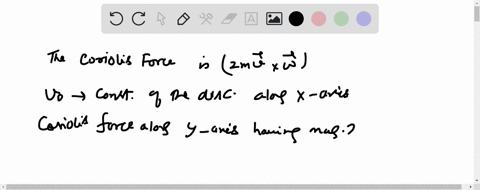 The Coriolis Force is (2m v⃗ × ω⃗)
v₀ → Const. of the disc. along x-axis
Coriolis force along y-axis having mag.?